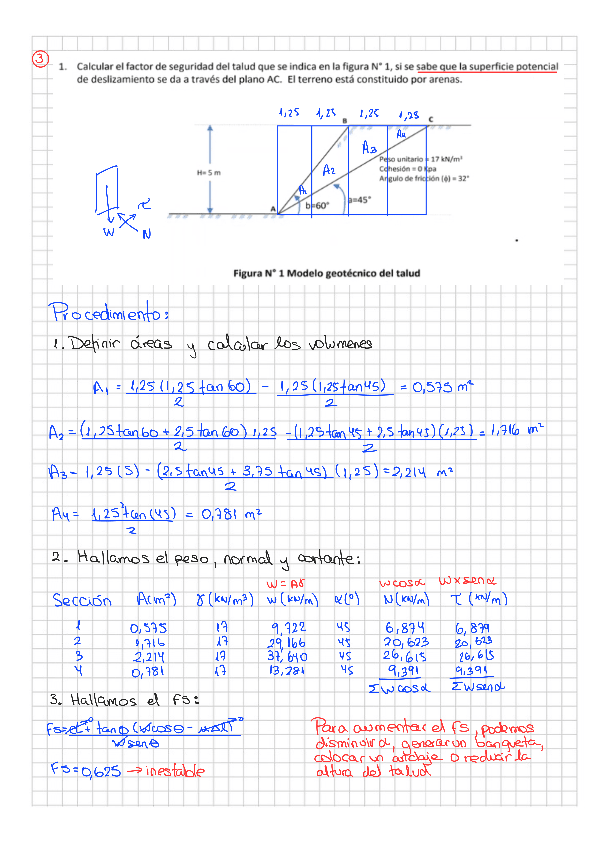 3
1. Calcular el factor de seguridad del talud que se indica en la figura N° 1, si se sabe que la superficie potencial
de deslizamiento se da a través del plano AC. El terreno está constituido por arenas.
1,25 1,25 1,25 1,25
B C
A4
A3
H= 5 m
A2
Peso unitario = 17 kN/m³
Cohesión = 0 Kpa
Angulo de fricción (ϕ) = 32°
A1
τ
A
b=60°
a=45°
W N
Figura N° 1 Modelo geotécnico del talud
Procedimiento:
1. Definir áreas y calcular los volumenes
A1 = 1,25 (1,25 tan 60) / 2 - 1,25 (1,25 tan 45) / 2 = 0,575 m²
A2 = (1,25 tan 60 + 2,5 tan 60) 1,25 / 2 - (1,25 tan 45 + 2,5 tan 45) (1,25) / 2 = 1,716 m²
A3 = 1,25 (5) - (2,5 tan 45 + 3,75 tan 45) (1,25) / 2 = 2,214 m²
A4 = 1,25² tan (45) / 2 = 0,781 m²
2. Hallamos el peso, normal y cortante:
W = Aγ wcosα W x senα
Sección A(m²) γ (kN/m³) W (kN/m) α(°) N (kN/m) τ (kN/m)
1 0,575 17 9,722 45 6,874 6,874
2 1,716 17 29,166 45 20,623 20,623
3 2,214 17 37,640 45 26,615 26,615
4 0,781 17 13,281 45 9,391 9,391
Σ W cos α Σ W sen α
3. Hallamos el fs:
Wsenθ
Fs = 0,625 → inestable
Para aumentar el fs, podemos
disminuir α, generar un banqueta,
colocar un anclaje o reducir la
altura del talud